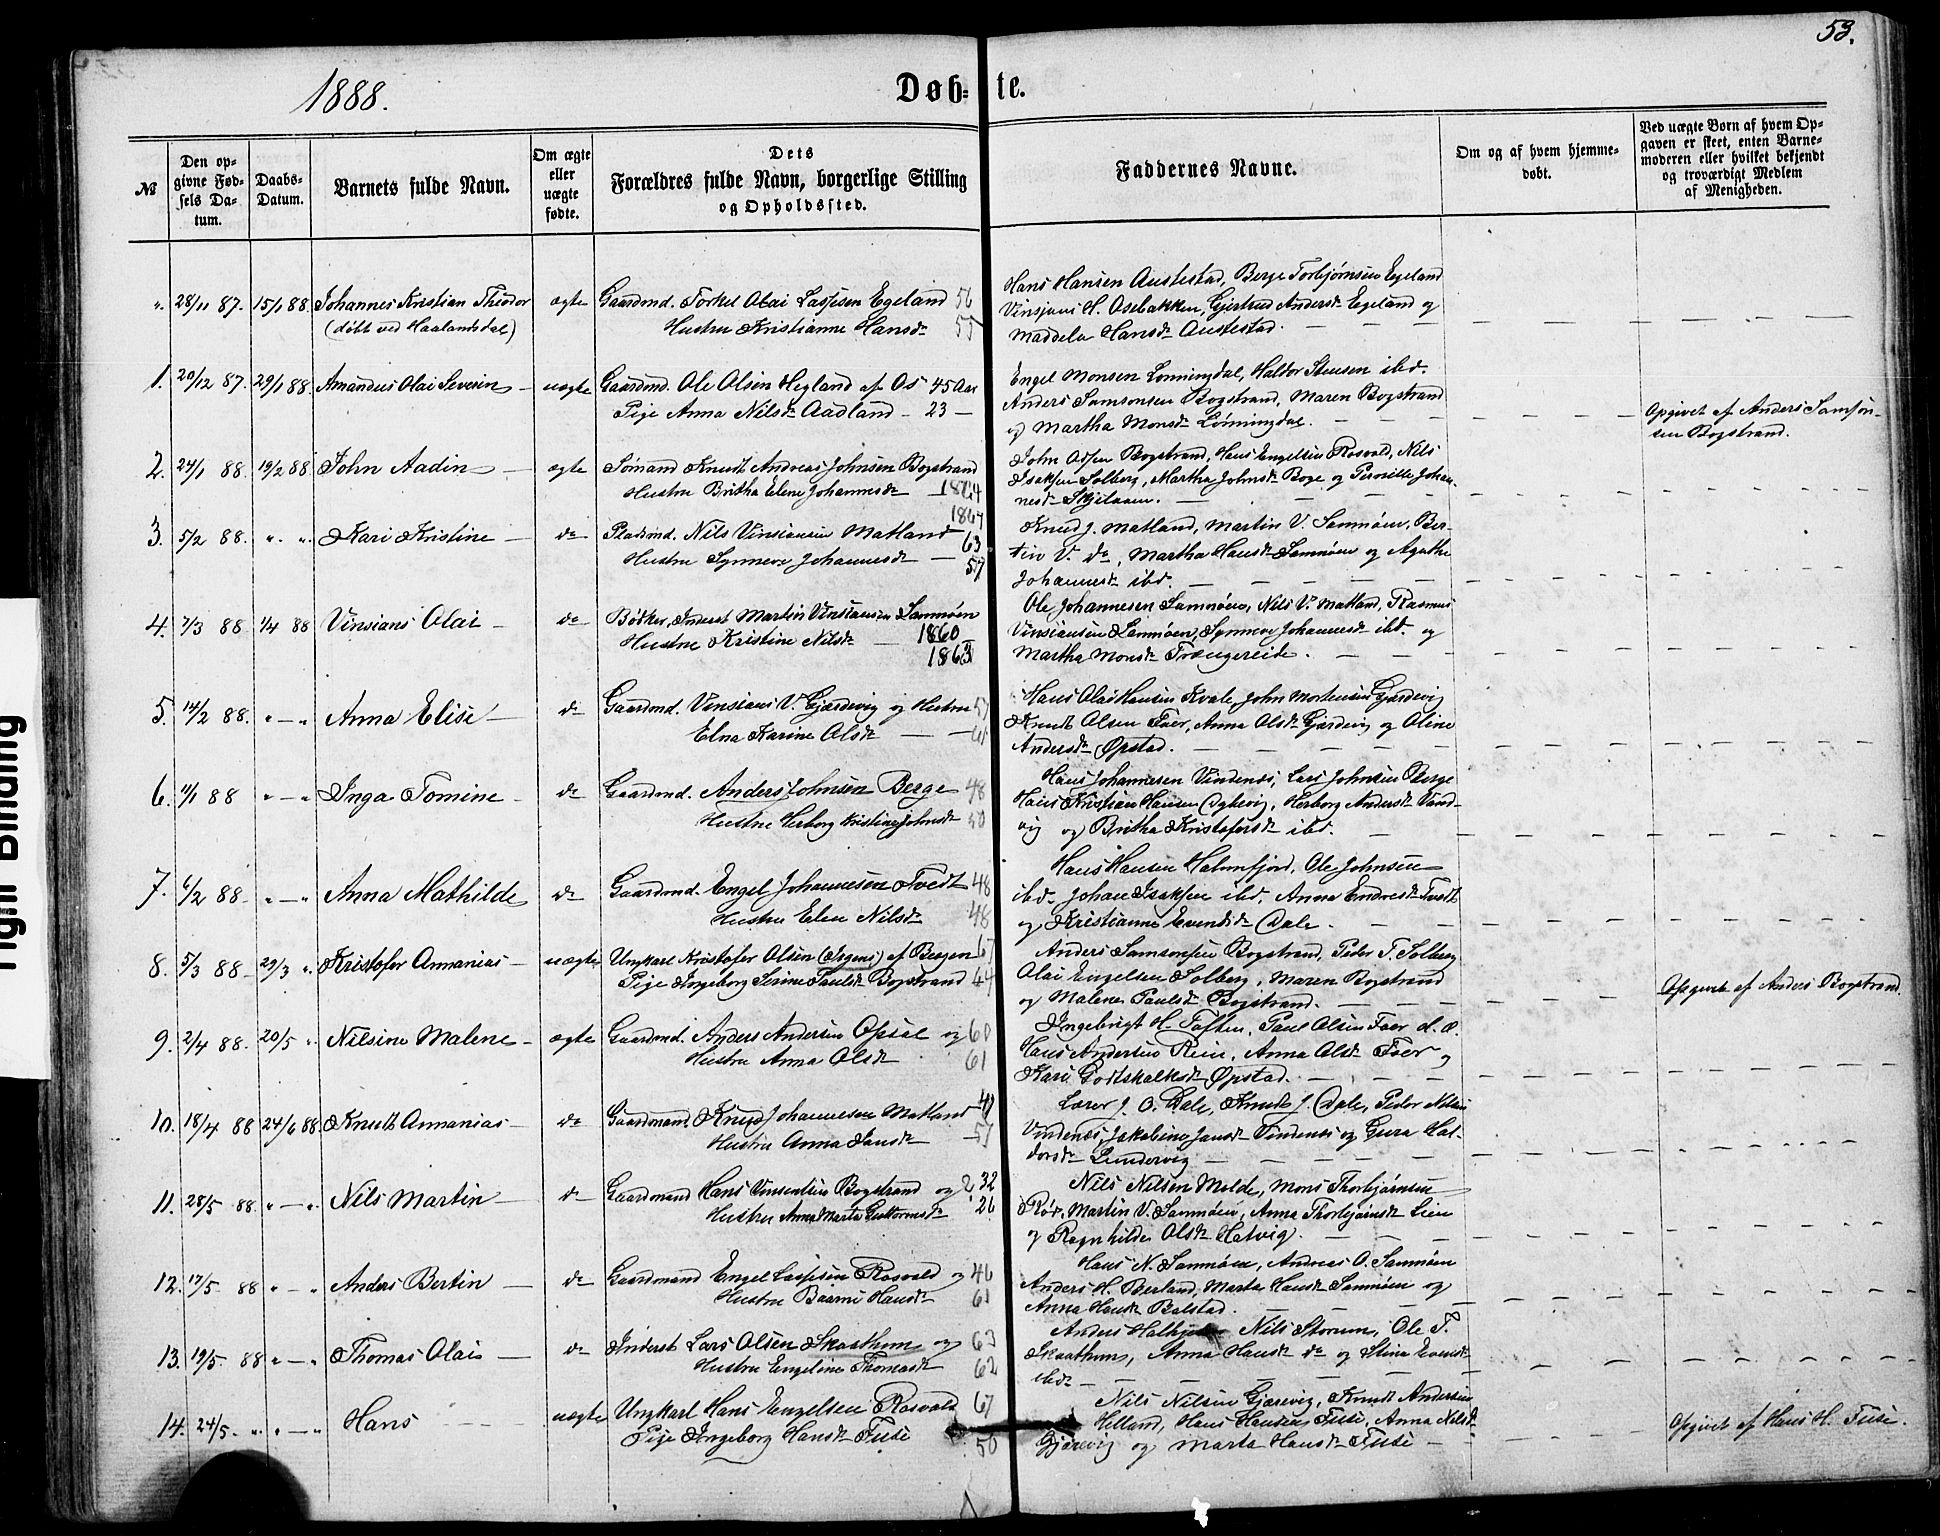 53.
1888.
Døb-te.
№
Den opgivne Fødsels Datum.
Daabs-Datum.
Barnets fulde Navn.
Om ægte eller uægte fødte.
Dets Forældres fulde Navn, borgerlige Stilling og Opholdssted.
Faddernes Navne.
Om og af hvem hjemmedøbt.
Ved uægte Børn af hvem Opgaven er skeet, enten Barnemoderen eller hvilket bekjendt og troværdigt Medlem af Menigheden.
". 28/11 87. 15/1 88. Johannes Kristian Theodor ægte Gaardmd. Torkel Olai Egeland 56
(døbt ved Haalandsdal) Hustru Kristianne Hansdr
Hans Hansen Austestad, Berge Torbjørnsen Egeland
H. Osebakken, Gjertrud Andersdr Egeland og
Hansdr Austestad.
1. 20/12 87. 29/1 88. Amandus Olai Severin uægte Gaardmd. Ole Olsen Hegland af Os 45 Aar
Pige Anna Nilsdr Aadland - 23 -
Engel Monsen Lønningdal, Haldor ibd.
Anders Samsonsen Bogstrand, Maren Bogstrand
og Martha Monsdr Lønningdal.
Opgivet af Anders Samson-
sen Bogstrand.
2. 24/1 88. 19/2 88 John Aadin ægte Sømand Knut Andreas Johnsen Bogstrand
Hustru Britha Elene Johannesdr 1864
John Bogstrand, Hans Engelsen Rosvold, Nils
Isaksen Solberg, Martha Johnsdr Boge og Pernille Johan-
nesdr
3. 5/2 88. " " Kari Kristine do 1864
Pladsmd. Nils Vinsiansen Matland 63
Hustru Synneve Johannesdr 57
Knud J. Matland, Martin V. Samnøen, Ber-
tin V. do, Martha Hansdr Samnøen og Agathe
Johannesdr ibd.
4. 7/3 88 1/4 88 Vinsians Olai do Bødker, Inderst Martin Vinsiansen Samnøen
Hustru Kristine Nilsdr 1860
1863
Ole Johannesen Samnøen, Nils V. Matland, Rasmus
Vinsiansen Samnøen, Synneve Johannesdr ibd. og
Martha Monsdr Trængereide.
5. 14/2 88. " — " Anna Elise do Gaardmd. Vinsians V. Gjærdevig og Hustru 57
Elna Karine Olsdr 61
Hans Olai Hansen Kvale, John Mortensen Gjerdevig
Knut Olsen Foer, Anna Olsdr Gjerdevig og Oline
Andersdr Øpstad.
6. 11/1 88 " — " Inga Tomine do Gaardmd. Anders Johnsen Berge 48
Hustru Herborg Kristine Johnsdr 50
Hans Johannesen Vindenes, Lars Johnsen Berge
Hans Kristian Hansen, Herborg Andersdr Vind-
vig og Britha Kristofersdr ibd.
7. 6/2 88 " — " Anna Mathilde do Gaardmd. Engel Johannesen Tvedt 48
Hustru Elen Nilsdr 48
Hans Hansen Holmefjord, Ole Johnsen
ibd. Johan Isaksen ibd, Anna Endresdr Tvedt
og Kristianne Evendsdr Dale.
8. 5/3 88 29/3 " Kristofer Annanias uægte Ungkarl Kristofer Olsen (Irgens) af Bergen 67
Pige Ingeborg Serine Paulsdr Bogstrand 64
Anders Samsonsen Bogstrand, Peder T. Solberg
Olai Engelsen Solberg, Maren Bogstrand
og Malene Paulsdr Bogstrand.
Opgivet af Anders Bogstrand.
9. 2/4 88. 20/5 " Nilsine Malene ægte Gaardmd. Anders Andersen Opsal og 60
Hustru Anna Olsdr 61
Ingebrigt H. Toften, Paul Olsen Foer d. æ.
Hans Andersen Rein, Anna Olsdr Foer og
Kari Godtskalksdr Øpstad.
10. 18/4 88 24/6 88 Knut Annanias do Gaardmand Knud Johannesen Matland 49
Hustru Anna Jansdr 51
Lærer J. O. Dale, Knud J. Dale, Peder Nilsen
Vindenes, Jakobine Jansdr Vindenes og Gura Hal-
dorsdr Lundervig
11. 28/5 88. " — ". Nils Martin do Gaardmand Hans Vinsentsen Bogstrand og 32
Hustru Anna Marta Guttormsdr 26
Nils Nilsen Melde, Mons Thorbjørnsen
Røv, Martin V. Samnøen, Anna Thorbjørnsdr Lien
og Ragnhilde Olsdr Hetvig.
12. 17/5 88 " — " Anders Bertin do Gaardmand Engel Rosvold og 46
Hustru Hansdr 61
Hans N. Samnøen, Andreas O. Samnøen
Anders H. Berland, Marta Hansdr Samnøen og
Anna Hansdr Balstad.
13. 19/5 88 " — " Thomas Olai do Inderst Lars Olsen Skaathun og 63
Hustru Engeline Thomasdr 62
Anders Nils Storum, Ole T.
Skaathun, Anna Hansdr do og Stina Evensdr
ibd
14. 24/5. " " — " Hans uægte Ungkarl Hans Engelsen Rosvold 67
Pige Ingeborg Hansdr Fuse 50
Nils Nilsen Gjærevig, Knud Andersen
Helland, Hans Hansen Fuse, Anna Nilsdr
Gjærevig og Marta Hansdr Fuse
Opgivet af Hans H. Fuse.